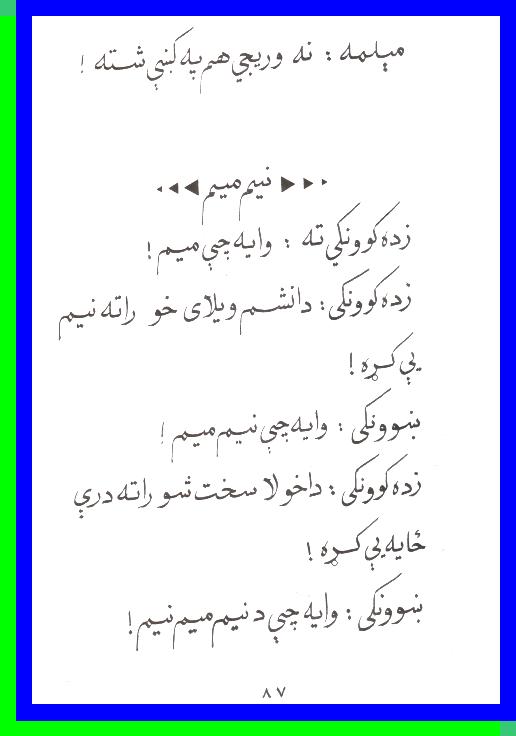 میلمه : نه وریجي هم په کښې شته !
▸ ▸ ▶ نیم میم ◀ ◂ ◂
زده کوونکي ته : وایه چې میم !
زده کوونکی : دا نشم ویلای خو راته نیم
یې کړه !
ښوونکی : وایه چې نیم میم !
زده کوونکی : دا خو لا سخت شو راته درې
ځایه یې کړه !
ښوونکی : وایه چې د نیم میم نیم !
۸۷